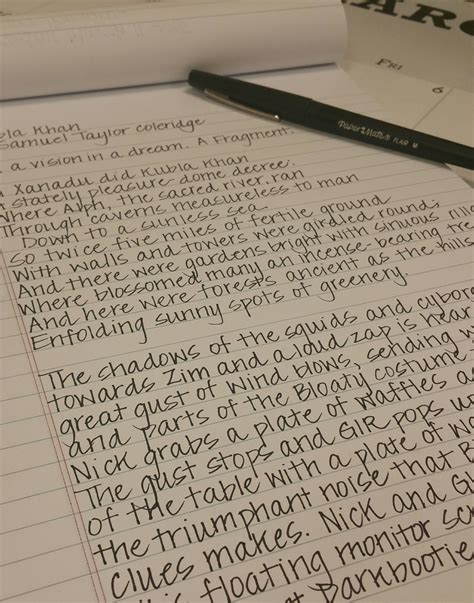 ARC
FRI
6
PaperMate FLAIR M
bla Khan
Samuel Taylor Coleridge
a vision in a dream. A Fragment.
Xanadu did Kubla Khan
stately pleasure-dome decree:
Where Alph, the sacred river, ran
Through caverns measureless to man
Down to a sunless sea.
So twice five miles of fertile ground
With walls and towers were girdled round;
And there were gardens bright with sinuous rill
Where blossomed many an incense-bearing tre
And here were forests ancient as the hills
Enfolding sunny spots of greenery.
The shadows of the squids and cybor
towards Zim and a loud zap is hear
great gust of wind blows, sending
and parts of the Bloaty costume
Nick grabs a plate of waffles as
The gust stops and GIR pops u
of the table with a plate of wa
the triumphant noise that B
clues makes. Nick and GI
floating monitor scr
at Parkbootie